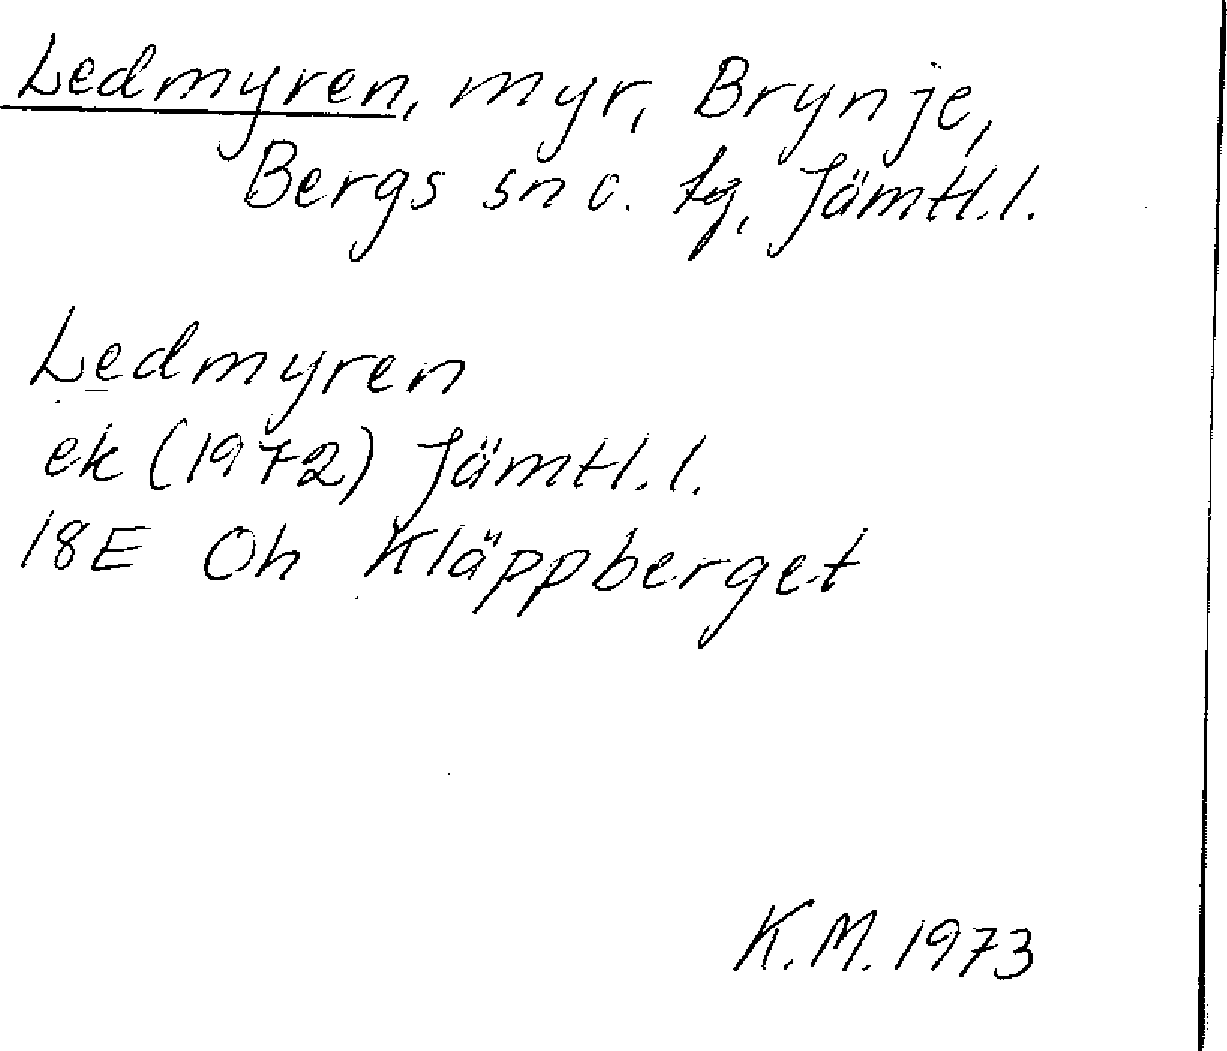 Ledmyren, myr, Brynje,
Bergs sn o. tg, Jämtl.l.
Ledmyren
ek (1972) Jämtl.l.
18E 0h Kläppberget
K.M. 1973